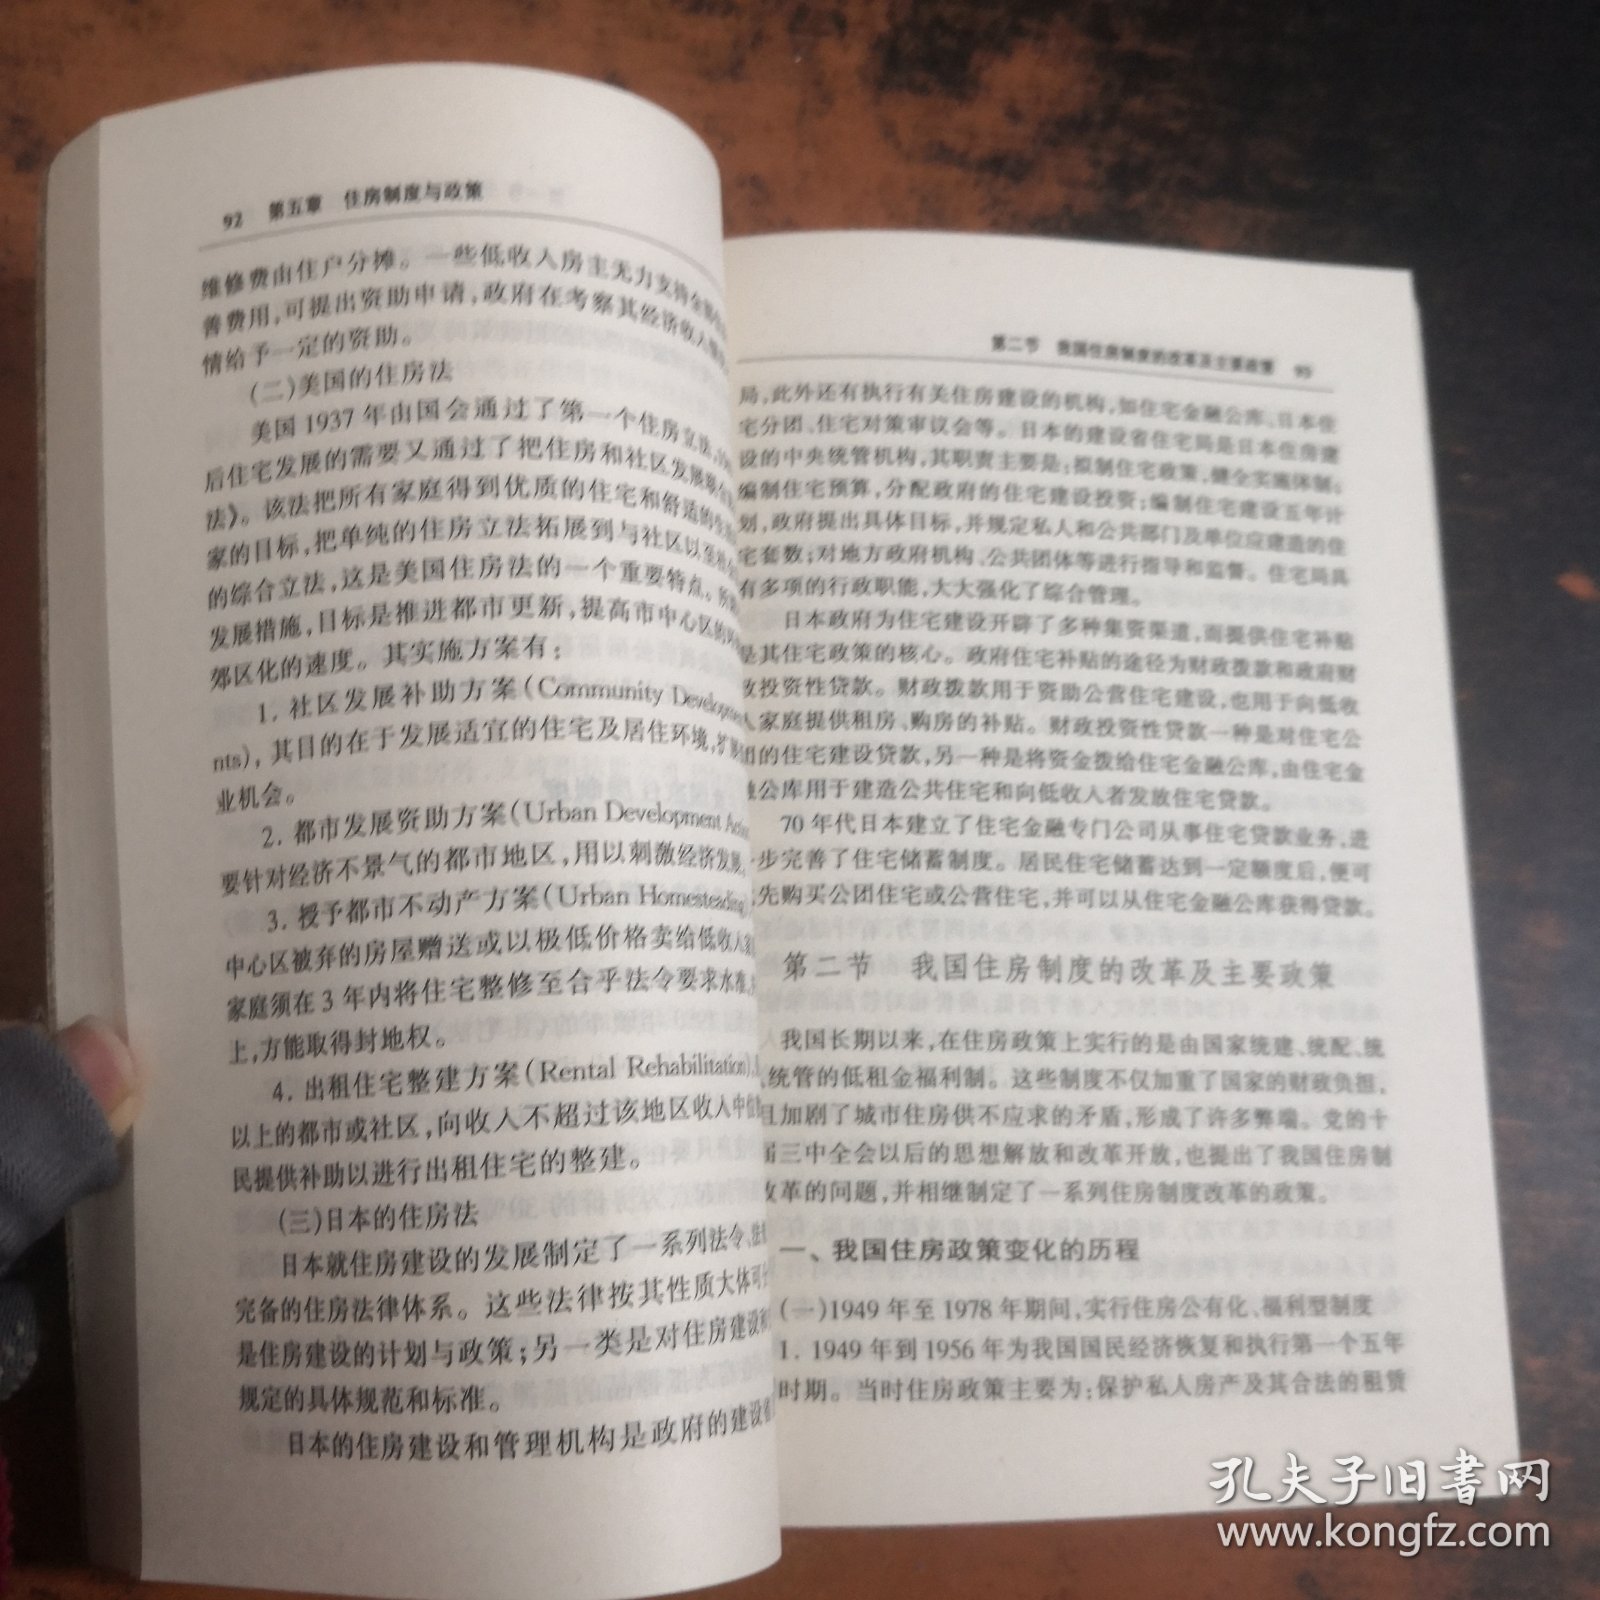 92 第五章 住房制度与政策
维修费由住户分摊。一些低收入房主无力支持全
善费用,可提出资助申请,政府在考察其经济收入
情给予一定的资助。
(二)美国的住房法
美国1937年由国会通过了第一个住房立法,
后住宅发展的需要又通过了把住房和社区发展联
法》。该法把所有家庭得到优质的住宅和舒适的
家的目标,把单纯的住房立法拓展到与社区以至
的综合立法,这是美国住房法的一个重要特点。所
发展措施,目标是推进都市更新,提高市中心区的
郊区化的速度。其实施方案有:
1. 社区发展补助方案(Community Development
nts),其目的在于发展适宜的住宅及居住环境,扩
业机会。
2. 都市发展资助方案(Urban Development
要针对经济不景气的都市地区,用以刺激经济发展。
3. 授予都市不动产方案(Urban Homesteading)
中心区被弃的房屋赠送或以极低价格卖给低收入
家庭须在3年内将住宅整修至合乎法令要求水准,
上,方能取得封地权。
4. 出租住宅整建方案(Rental Rehabilitation),
以上的都市或社区,向收入不超过该地区收入中位
民提供补助以进行出租住宅的整建。
(三)日本的住房法
日本就住房建设的发展制定了一系列法令、法
完备的住房法律体系。这些法律按其性质大体可
是住房建设的计划与政策;另一类是对住房建设
规定的具体规范和标准。
日本的住房建设和管理机构是政府的建设省
第二节 我国住房制度的改革及主要政策 93
局,此外还有执行有关住房建设的机构,如住宅金融公库、日本住
宅分团、住宅对策审议会等。日本的建设省住宅局是日本住房建
设的中央统管机构,其职责主要是:拟制住宅政策,健全实施体制;
编制住宅预算,分配政府的住宅建设投资;编制住宅建设五年计
划,政府提出具体目标,并规定私人和公共部门及单位应建造的住
宅套数;对地方政府机构、公共团体等进行指导和监督。住宅局具
有多项的行政职能,大大强化了综合管理。
日本政府为住宅建设开辟了多种集资渠道,而提供住宅补贴
是其住宅政策的核心。政府住宅补贴的途径为财政拨款和政府财
政投资性贷款。财政拨款用于资助公营住宅建设,也用于向低收
人家庭提供租房、购房的补贴。财政投资性贷款一种是对住宅公
团的住宅建设贷款,另一种是将资金拨给住宅金融公库,由住宅金
融公库用于建造公共住宅和向低收人者发放住宅贷款。
70年代日本建立了住宅金融专门公司从事住宅贷款业务,进
一步完善了住宅储蓄制度。居民住宅储蓄达到一定额度后,便可
先购买公团住宅或公营住宅,并可以从住宅金融公库获得贷款。
第二节 我国住房制度的改革及主要政策
我国长期以来,在住房政策上实行的是由国家统建、统配、统
统管的低租金福利制。这些制度不仅加重了国家的财政负担,
且加剧了城市住房供不应求的矛盾,形成了许多弊端。党的十
届三中全会以后的思想解放和改革开放,也提出了我国住房制
改革的问题,并相继制定了一系列住房制度改革的政策。
一、我国住房政策变化的历程
(一)1949年至1978年期间,实行住房公有化、福利型制度
1. 1949年到1956年为我国国民经济恢复和执行第一个五年
时期。当时住房政策主要为:保护私人房产及其合法的租赁
孔夫子旧书网
www.kongfz.com